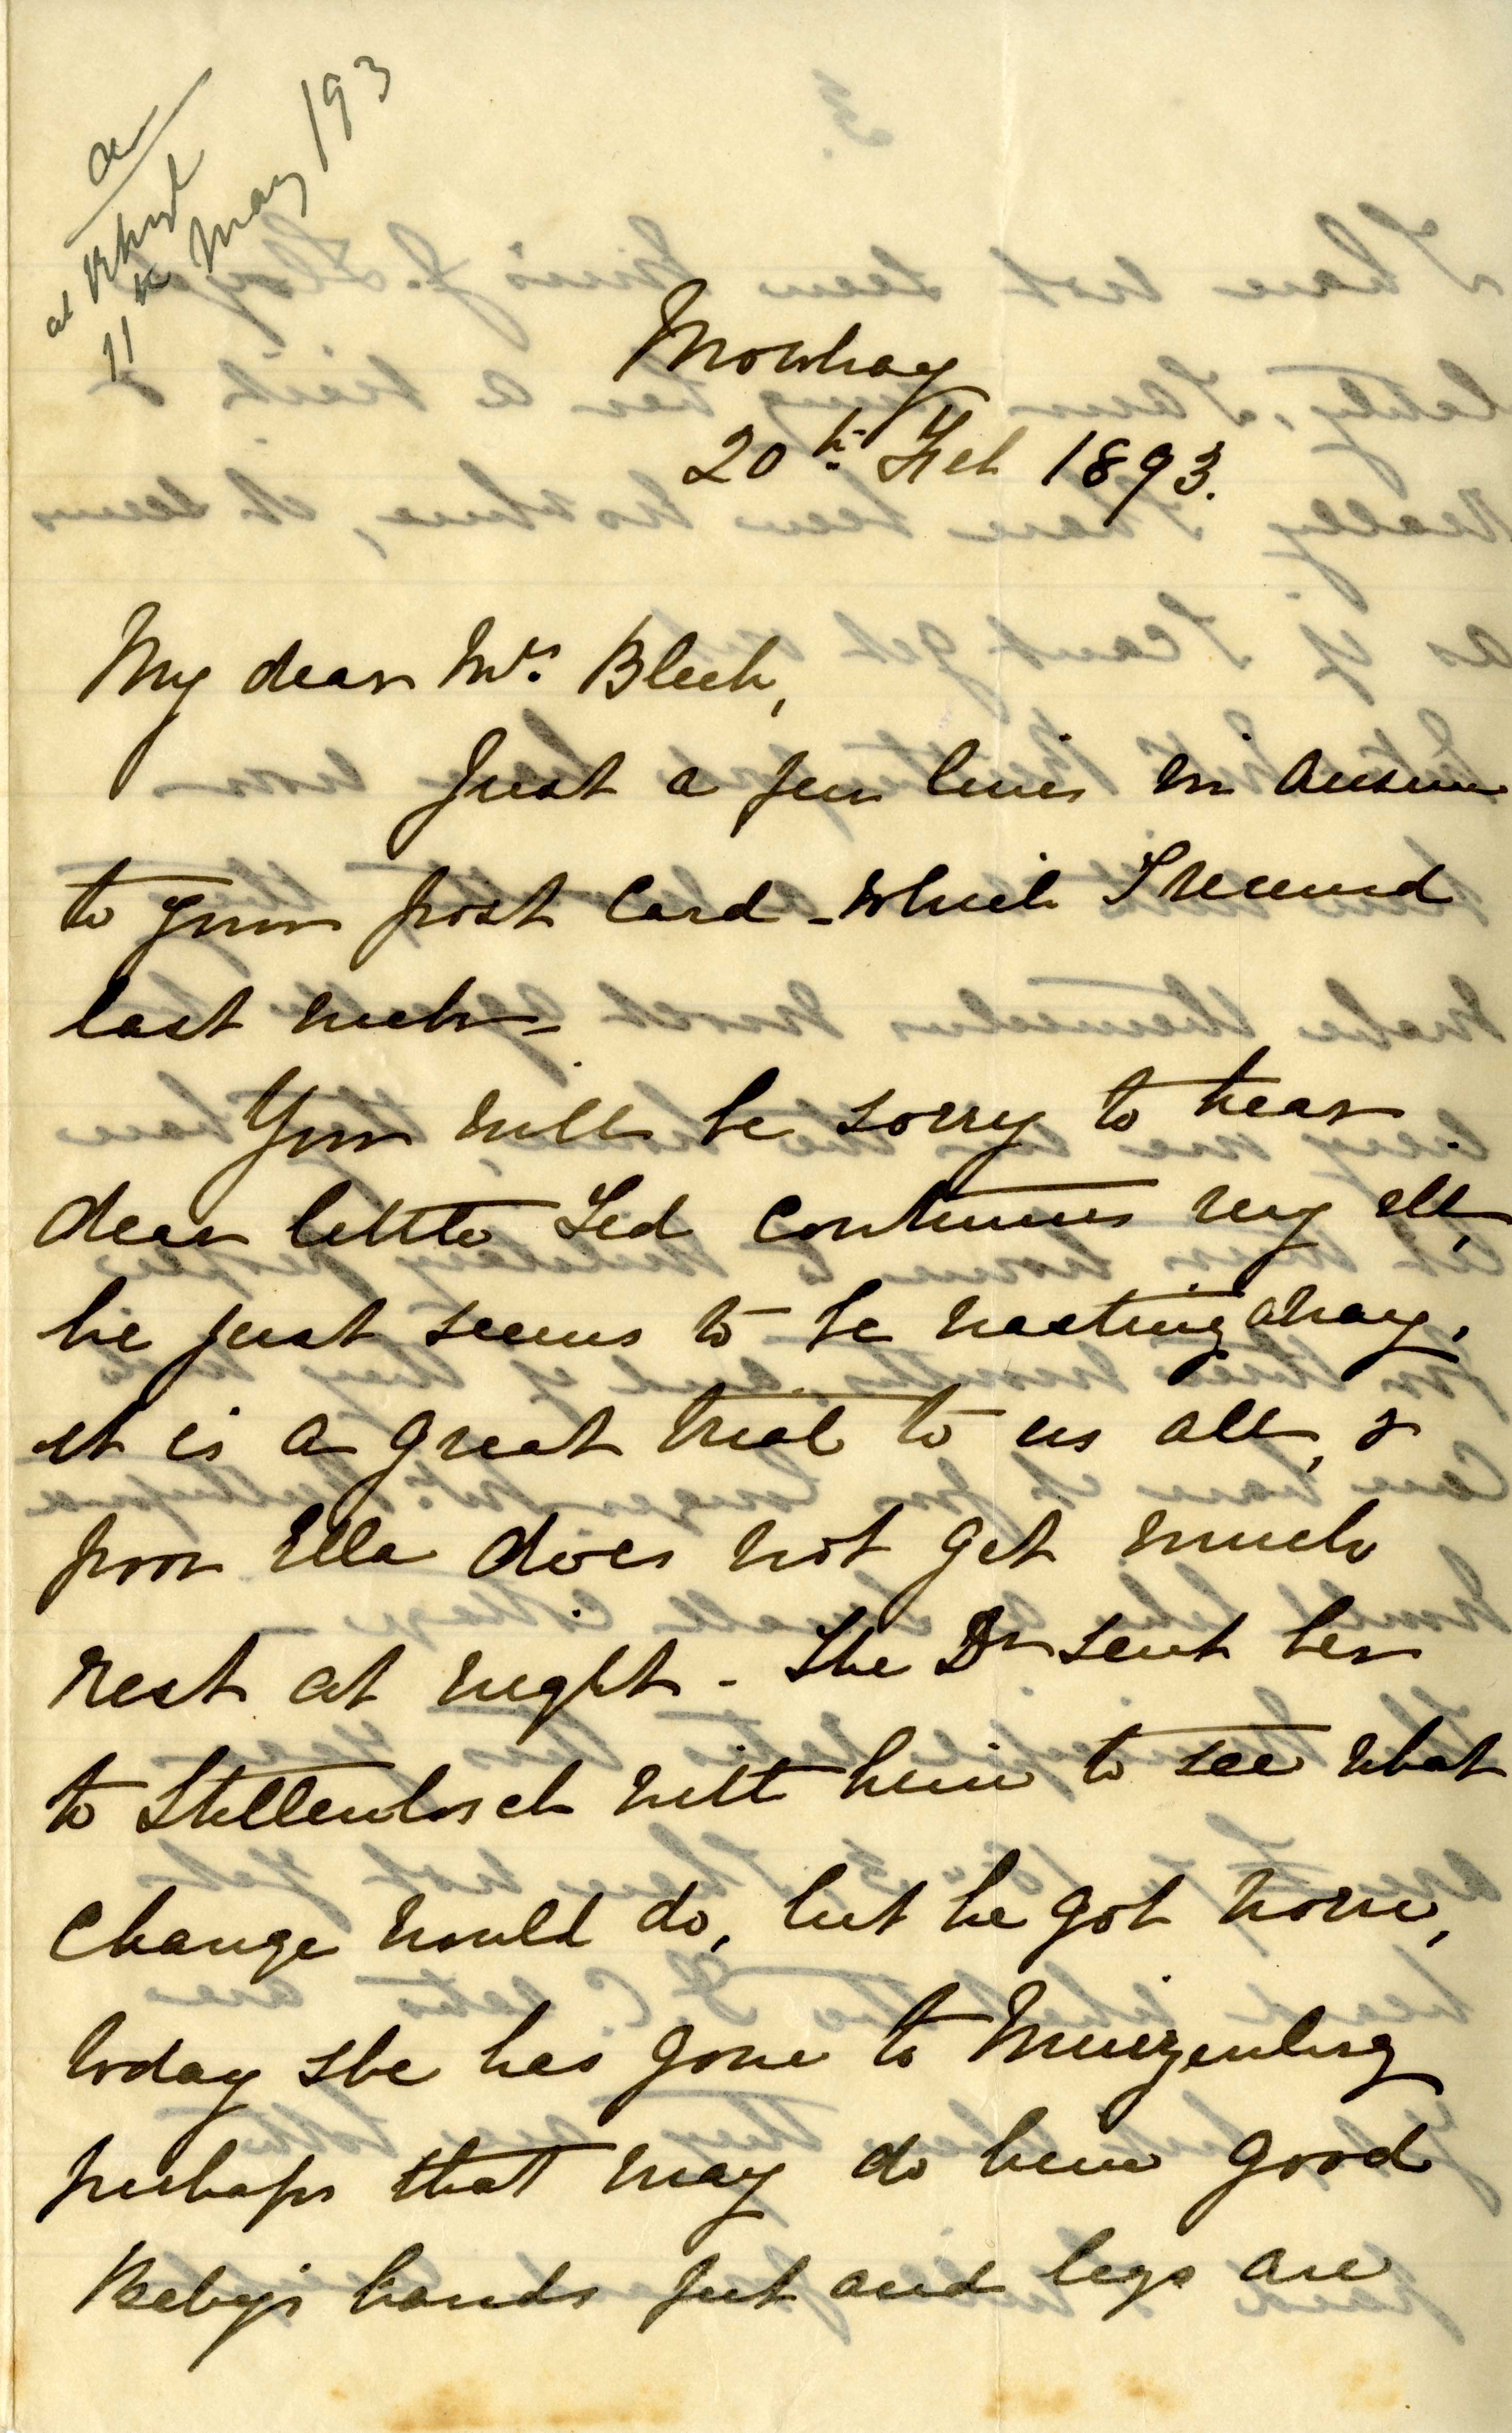 a
at Rhyl
11th May /93
Mowbray
20th Feb 1893.
My dear Mrs. Bleek,
Just a few lines in answer
to your post card - which I received
last week -
You will be sorry to hear
dear little Ted continues very ill,
he just seems to be wasting away.
it is a great trial to us all, &
poor Ella does not get much
rest at night - The Dr sent her
to Stellenbosch with him to see what
change would do, but he got worse,
today she has gone to Muizenberg
perhaps that may do him good
Baby's hands feet and legs are